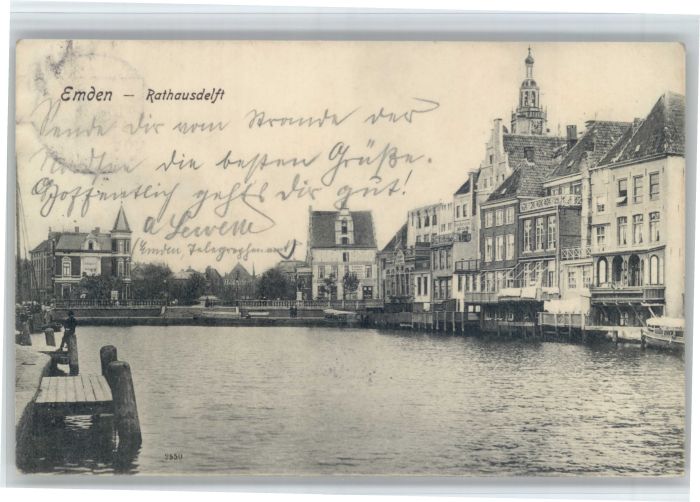 Emden – Rathausdelft
Sende dir vom Strande der
Nordsee die besten Grüße.
Hoffentlich gehts dir gut!
(Emden, Telegraphenamt)
9550